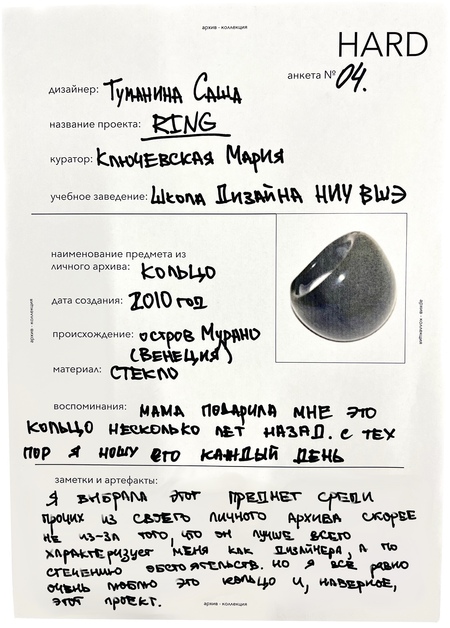 архив - коллекция
HARD
анкета № 04.
дизайнер: Туманина Саша
название проекта: RING
куратор: Ключевская Мария
учебное заведение: Школа Дизайна НИУ ВШЭ
наименование предмета из
личного архива: кольцо
дата создания: 2010 год
происхождение: остров Мурано
(Венеция)
материал: стекло
архив - коллекция
архив - коллекция
воспоминания: мама подарила мне это
кольцо несколько лет назад. с тех
пор я ношу его каждый день
заметки и артефакты:
я выбрала этот предмет среди
прочих из своего личного архива скорее
не из-за того, что он лучше всего
характеризует меня как дизайнера, а по
стечению обстоятельств. но я всё равно
очень люблю это кольцо и, наверное,
этот проект.
архив - коллекция